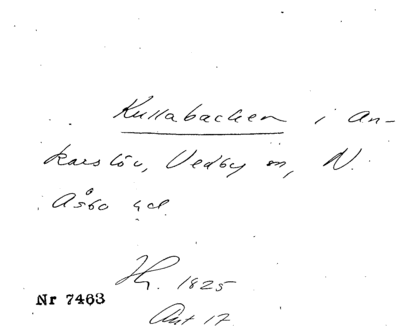 Kullabacken i An-
karslöv, Vedby sn, N.
Åsbo hd.
1825
Nr 7463
Akt 17